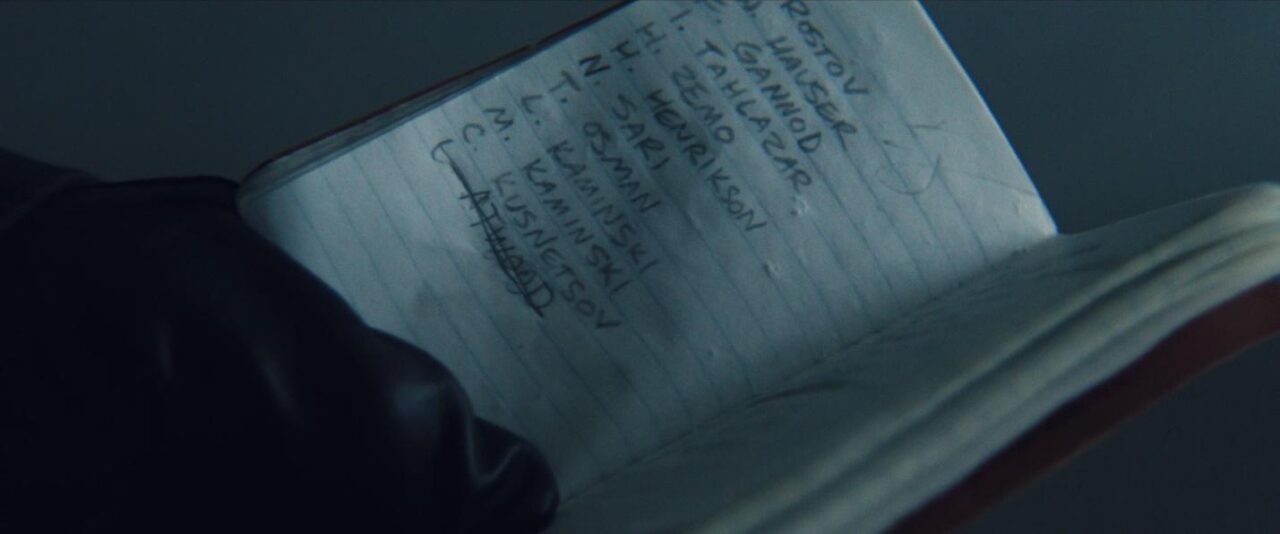 ROSTOV
HAUSER
E. GANNOD
I. TAHLAZAR
H. ZEMO
H. HENRIKSON
N. SARI
T. OSMAN
L. KAMINSKI
M. KAMINSKI
C. KUSNETSOV
L ATWOOD